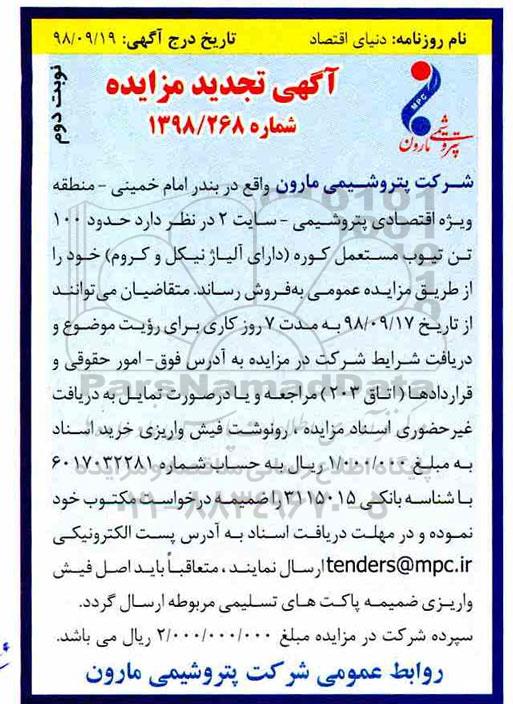 نام روزنامه: دنیای اقتصاد تاریخ درج آگهی: ۹۸/۰۹/۱۹
نوبت دوم
آگهی تجدید مزایده
شماره ۱۳۹۸/۲۶۸
MPC
پتروشیمی مارون
شرکت پتروشیمی مارون واقع در بندر امام خمینی - منطقه
ویژه اقتصادی پتروشیمی - سایت ۲ در نظر دارد حدود ۱۰۰
تن تیوب مستعمل کوره (دارای آلیاژ نیکل و کروم) خود را
از طریق مزایده عمومی به‌فروش رساند. متقاضیان می‌توانند
از تاریخ ۹۸/۰۹/۱۷ به مدت ۷ روز کاری برای رؤیت موضوع و
دریافت شرایط شرکت در مزایده به آدرس فوق- امور حقوقی و
قراردادها (اتاق ۲۰۳) مراجعه و یا درصورت تمایل به دریافت
غیرحضوری اسناد مزایده ، رونوشت فیش واریزی خرید اسناد
به مبلغ ۱/۰۰۰/۰۰۰ ریال به حساب شماره ۶۰۱۷۰۳۲۲۸۱
با شناسه بانکی ۳۱۱۵۰۱۵ را ضمیمه درخواست مکتوب خود
نموده و در مهلت دریافت اسناد به آدرس پست الکترونیکی
tenders@mpc.ir ارسال نمایند ، متعاقباً باید اصل فیش
واریزی ضمیمه پاکت های تسلیمی مربوطه ارسال گردد.
سپرده شرکت در مزایده مبلغ ۲/۰۰۰/۰۰۰/۰۰۰ ریال می باشد.
روابط عمومی شرکت پتروشیمی مارون
ParsNamadData
۰۲۱-۸۸۳۴۹۶۷۰-۵